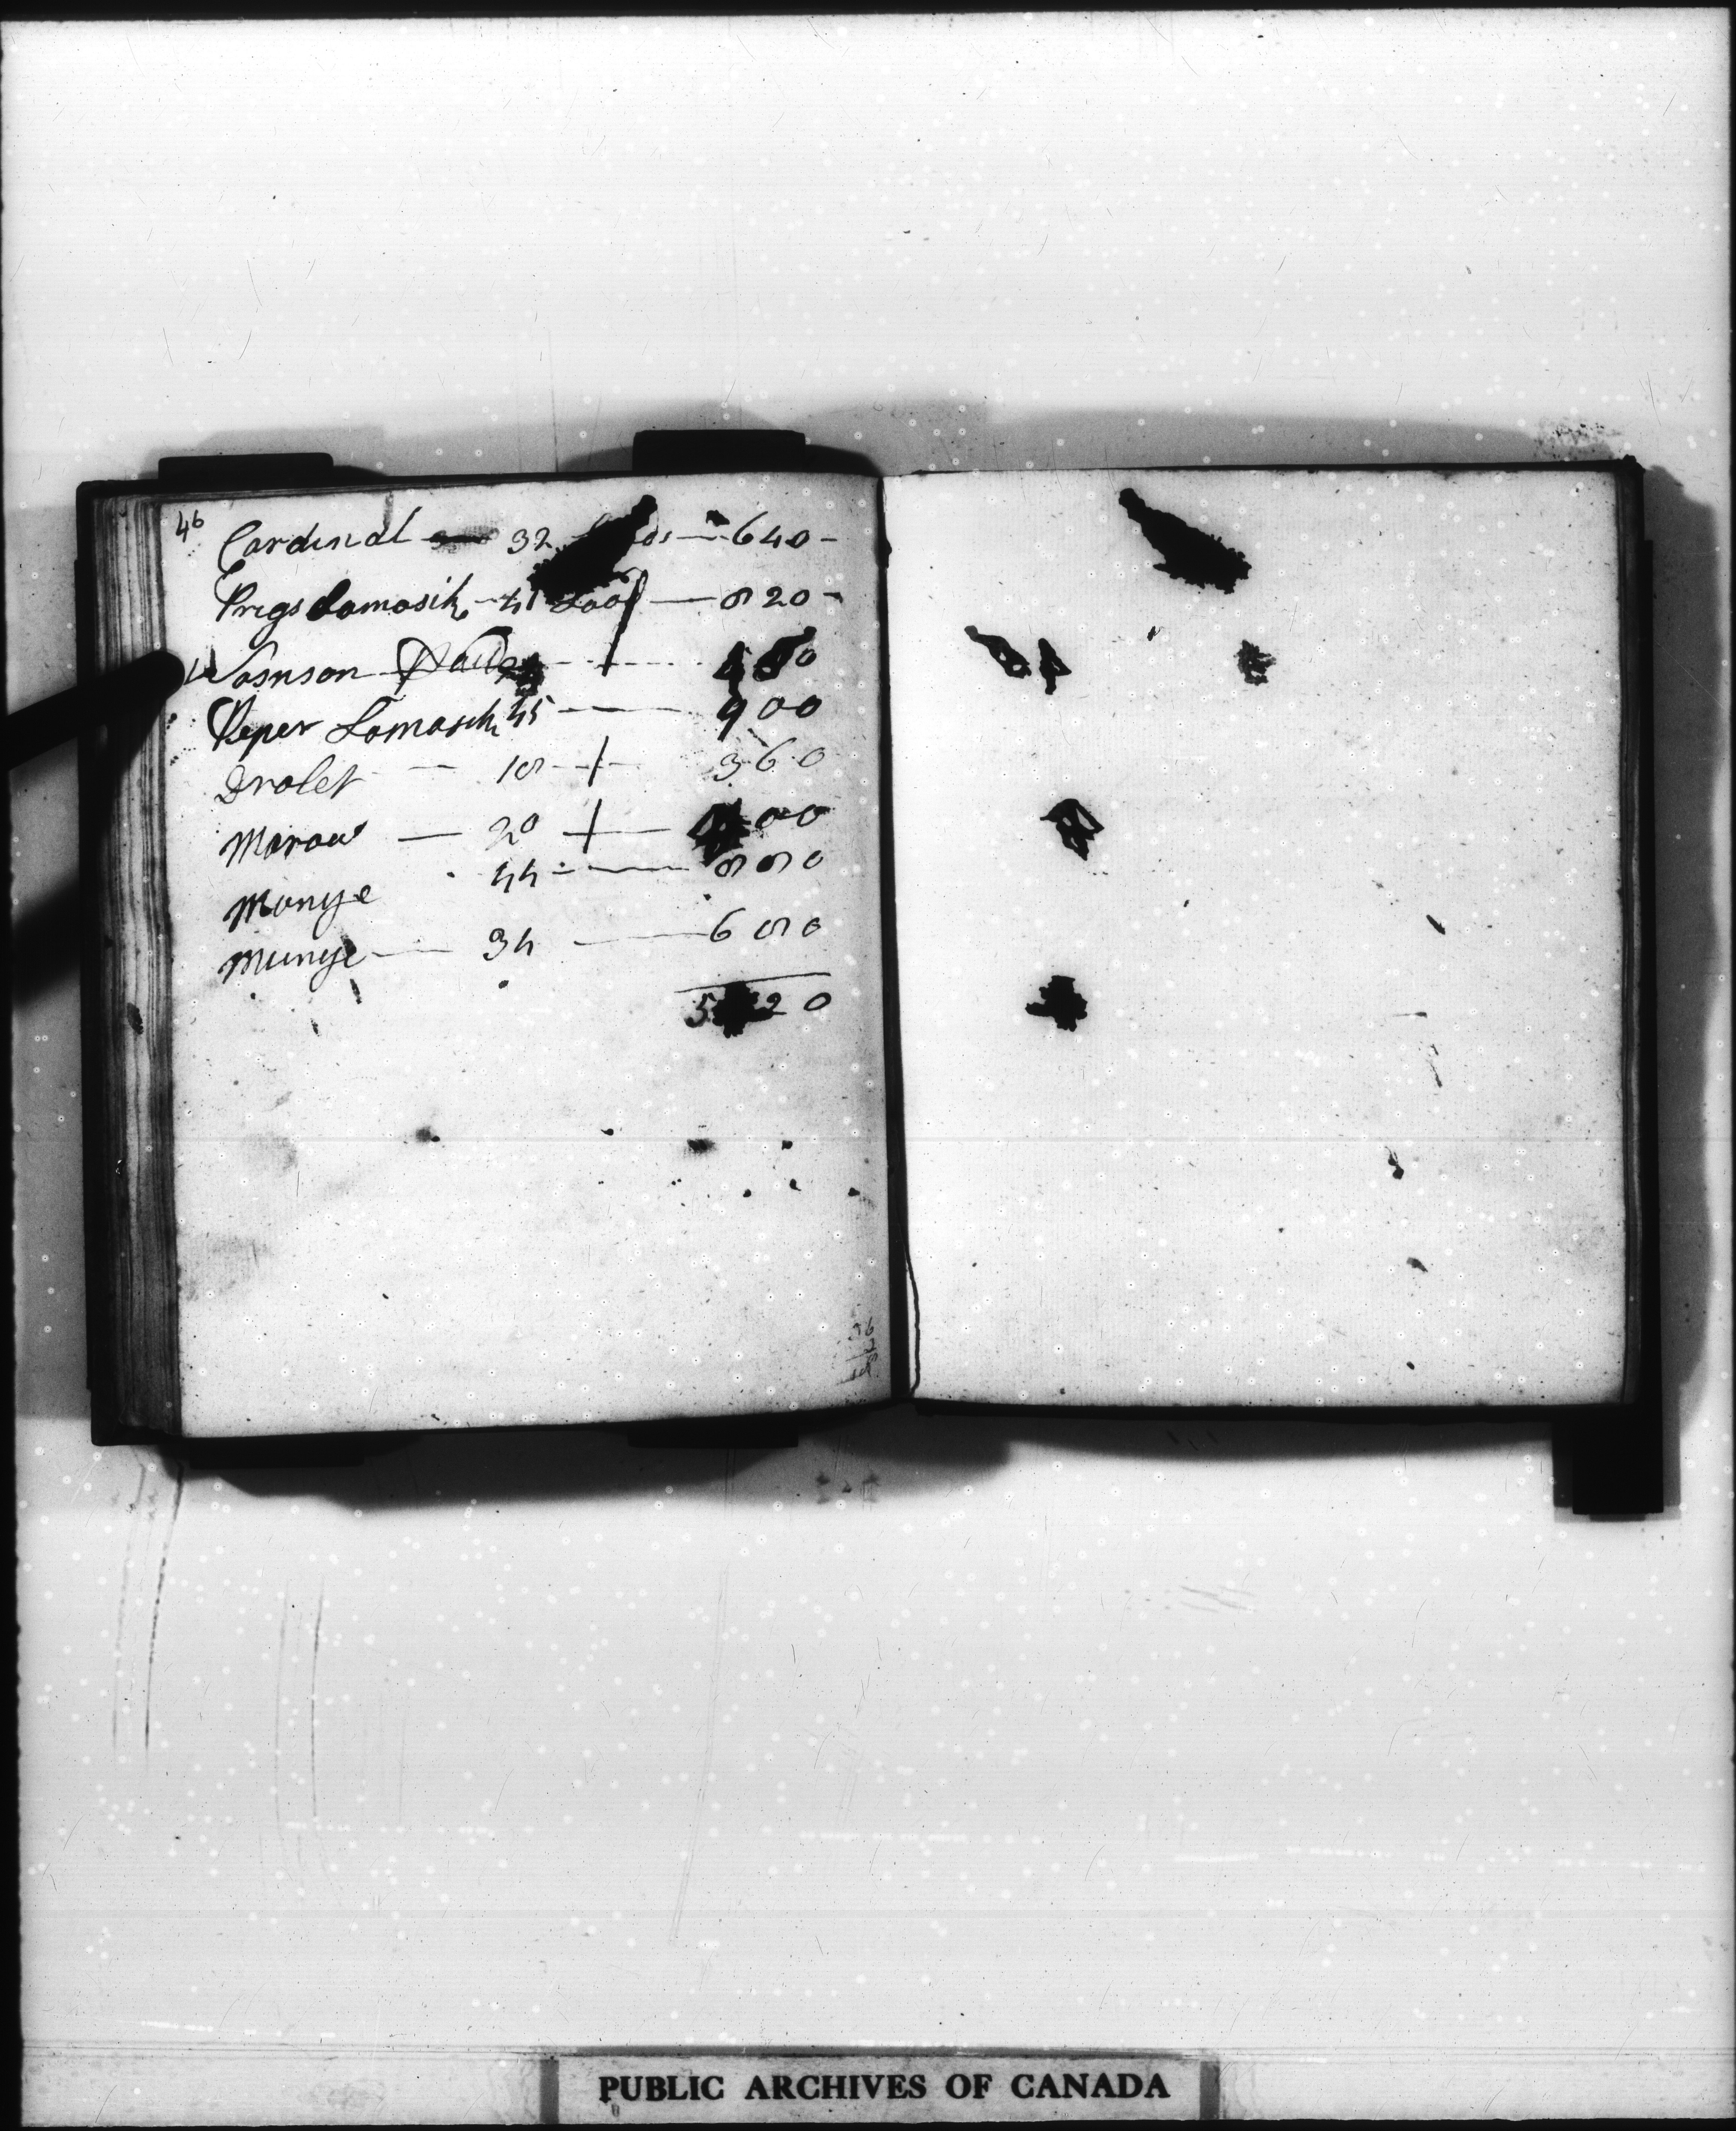 46
Cardinal — 32 — 640 -
Pregs Lamosik - 41 Loof — 820 -
Vosnson 0
Peper Lamosik 45 — 900
Drolet — 18 - + - 360
Marow — 20 + — 00
Monye 44 — 880
Munye — 34 — 680
5 20
PUBLIC ARCHIVES OF CANADA